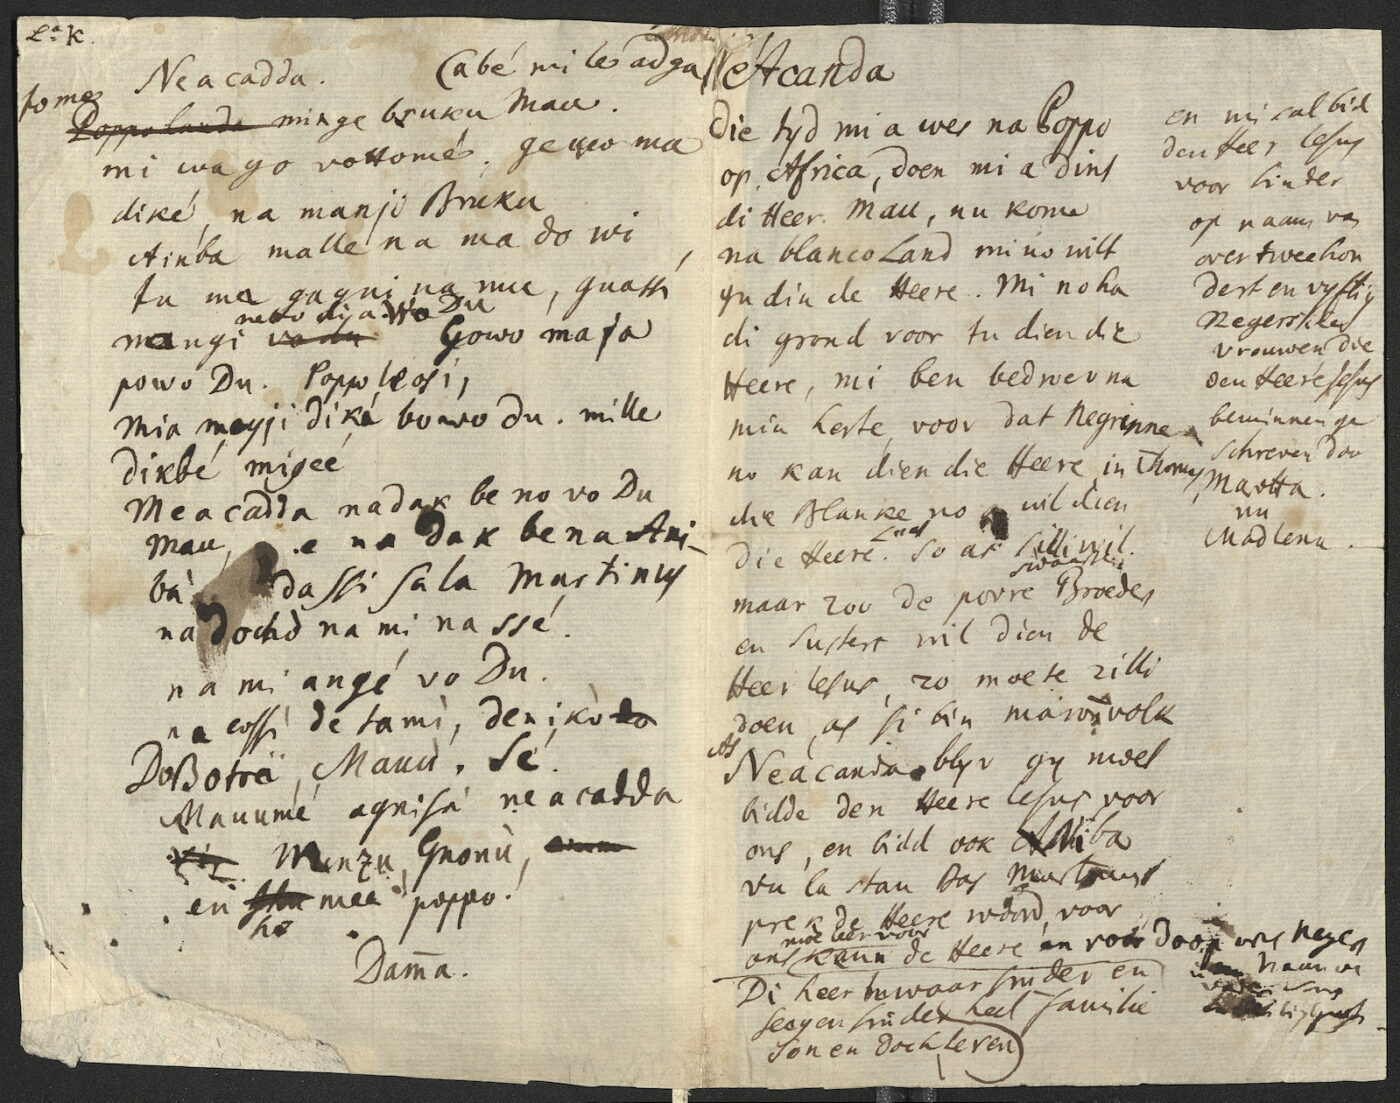 Neacadda. Cabé mi le adga
tome
Poppo lando minge bruku Mau.
mi wa go vottomé, gewo ma
diké, na manji Bruku
Aniba malle na ma do wi
tu ma gagni na mu, quassi
netto dija Wo Du
mangi Gowo maja
powo Du. Poppo leosi,
mia meyji diké bowo du. mille
dikbé migeé
Meacadda nadak be no vo Du
Mau, e na dak bena Ani-
ba dassi sala Martinus
na dochd na mi na ssé.
na mi angé vo Du.
na cossi de tami, denikò do
DoBotrei, Mauu, sé.
Mauumé agnisá neacadda
Minzu, Gnonù,
en mee poppo.
he
Damma.
Acanda
die tyd mi a wes na Poppo
op Africa, doen mi a dint
di Heer. Mau, nu kome
na blanco Land mi no wilt
gu din de Heere. Mi no ha
di grond voor tu dien die
Heere, mi ben bedroev na
min herte, voor dat Negrinne
no kan dien die Heere in Thomas,
die Blanke no wil dien
die Heere. so as silli wil.
maar zoo de povre Broeders
en Susters wil dien de
Heer Iesus, zo moete zilli
doen, as si bin maron volk
As
Neacanda blyv gy moet
bidde den Heere Iesus voor
ons, en bidd ook Aniba
vu la stan Bas Martinus
prek de Heere woord, voor
moe leer voor
ons kenn de Heere en voor Doop ons Neger
Di heer bewaar sinder en
seegen sinder heel familie
son en dochteren
en mi sal bid
den Heer Iesus
voor sinder
op naam van
over twee hon
dert en vyftig
Negersklen
vrouwen die
den Heere Jesus
beminnen ge
schreven doo
Marotta.
nu
Madlena.